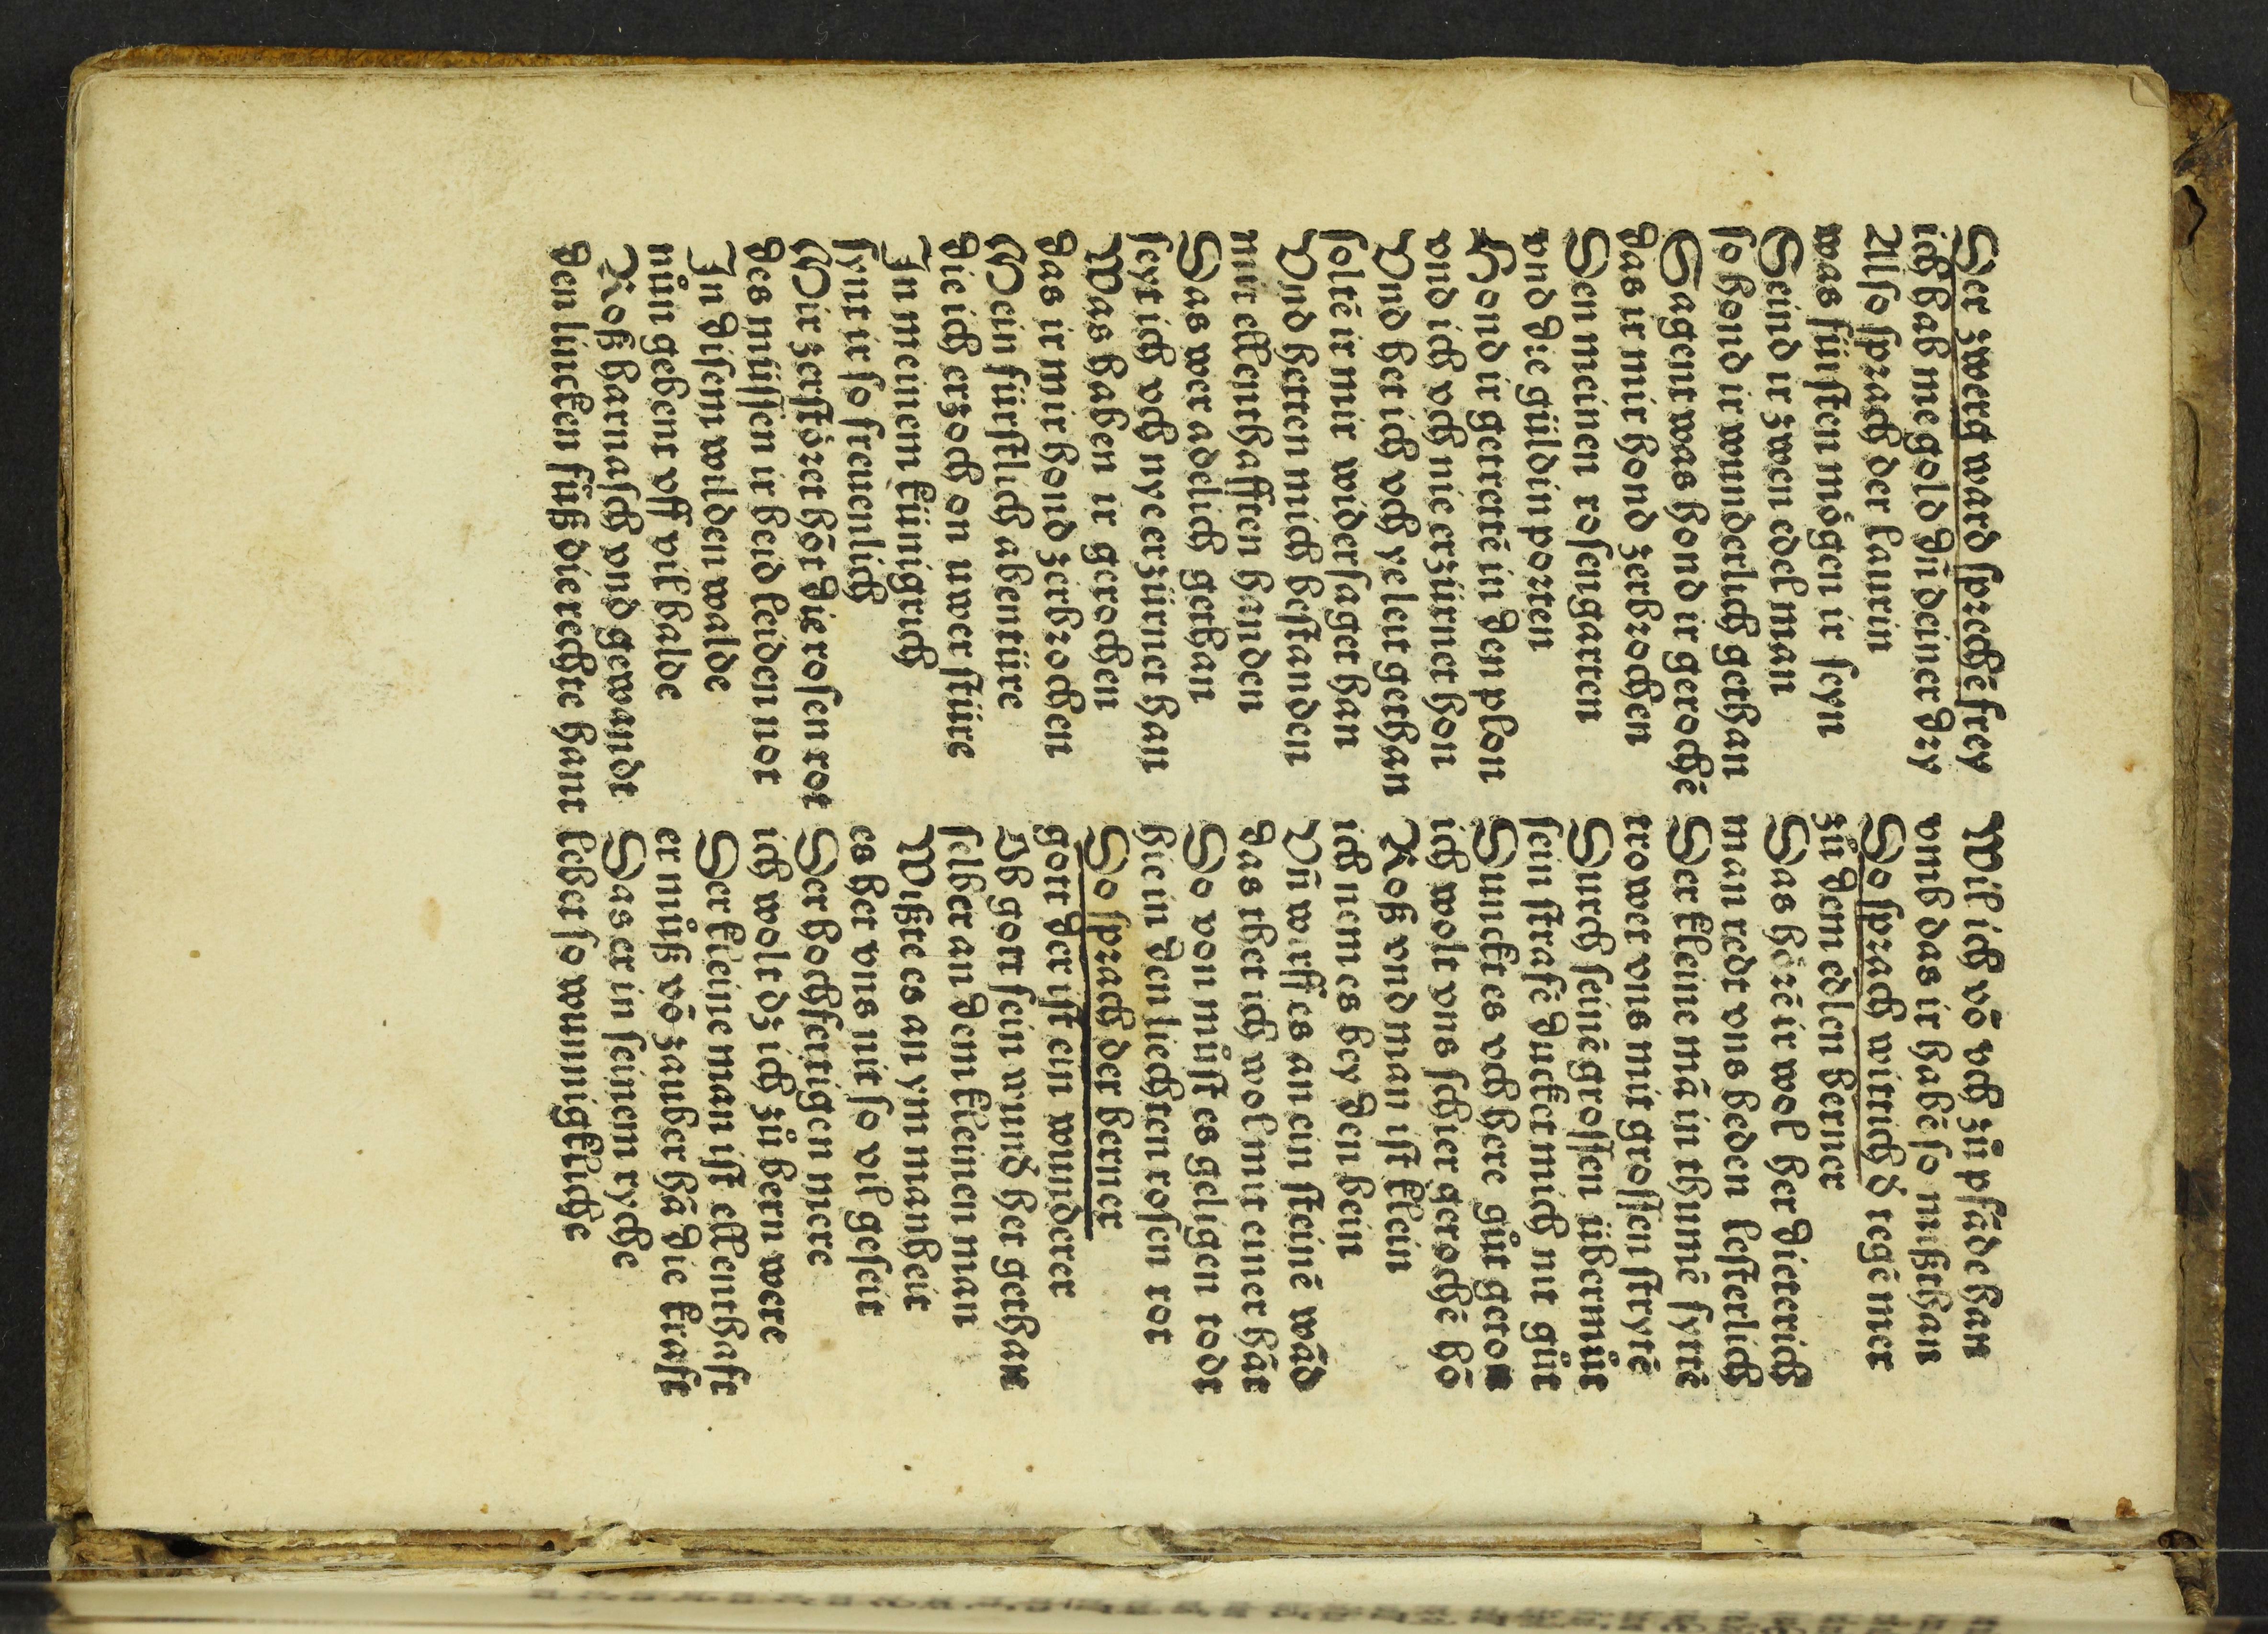 Der zwerg ward sprechē frey
ich hab me gold dā deiner dry
Also sprach der laurin
was füsten mögen ir seyn
Seind ir zwen edel man
so hond ir wunderlich gethan
Sagent was hond ir gerochē
das ir mir hond zerbrochen
Den meinen rosengarten
vnd die güldin porten
Hond ir gerettē in den plon
vnd ich vch nie erzürnet hon
Vnd het ich vch ye leut gethan
soltē ir mir widersaget han
Vnd hetten mich bestanden
mit ellenthafften handen
Das wer adelich gethan
seyt ich vch nye erzürnet han
Was haben ir gerochen
das ir mir hond zerbrochen
Mein fürstlich abentüre
die ich erzoch on uwer stüre
In meinem künigrich
synt ir so freuenlich
Wir zerstözet hōt die rosen rot
des müssen ir beid leiden not
In disem wilden walde
nůn gebent vff vil balde
Roß harnasch vnd gewandt
den lincken fůß die rechte hant
Wil ich vō vch zů pfāde han
vmb das ir habē so mißthan
Do sprach wittich d tegē mer
zů dem edlen berner
Das hözē ir wol her dieterich
man redt vns beden lesterlich
Der kleine mā in thumē syttē
trowet vns mit grossen strytē
Durch seinē grossen übermůt
sein strafē duncket mich nit gůt
Duncket es vch here gůt geton
ich wolt vns schier gerochē hō
Roß vnd man ist klein
ich nem es bey den bein
Vn̄ wirff es an ein steinē wād
das thet ich wol mit einer hāt
So von můst es geligen todt
hie in den liechten rosen rot
Do sprach der berner
gott der ist ein wunderer
Ob gott sein wund het gethan
selber an dem kleinen man
Wißte es an ym manheit
es het vns nit so vil geseit
Der hochfertigen mere
ich wolt dz ich zů bern were
Der kleine man ist ellenthaft
er můß vō zauber hā die kraft
Das er in seinem ryche
lebet so wunnigkliche